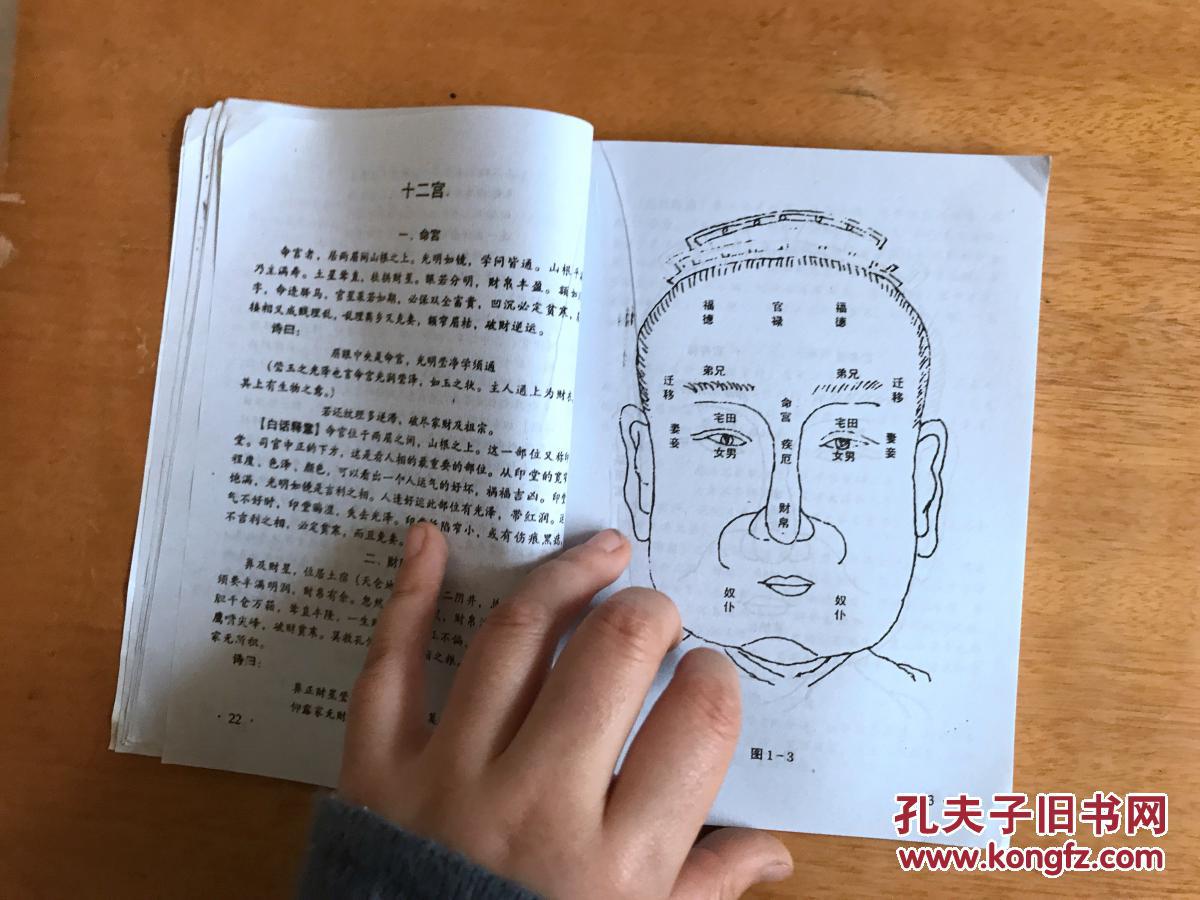 十二宫
一、命宫
命宫者，居两眉间山根之上。光明如镜，学问皆通。山根平
乃主满寿。土星耸直，扶拱财星。眼若分明，财帛丰盈。额如
字，命逢驿马，官星果若如期，必保双全富贵，凹沉必定贫寒，
接相又成贱理乱，乱理离乡又克妻，额窄眉枯，破财逆运。
诗曰：
眉眼中央是命宫，光明莹净学须通
（莹玉之光泽也言命宫光润莹泽，如玉之状。主人通上为财
其上有生物之意。）
若还纹理多逆滞，破尽家财及祖宗。
【白话释意】命宫位于两眉之间，山根之上。这一部位又称
堂。司官中正的下方，这是看人相的最重要的部位。从印堂的宽
程度、色泽、颜色，可以看出一个人运气的好坏，祸福吉凶。印
饱满，光明如镜是吉利之相。人逢好运此部位有光泽，带红润。
气不好时，印堂晦涩，失去光泽。印陷窄小，或有伤痕黑
不吉利之相，必定贫寒，而且克妻。
二、财
鼻及财星，位居土宿（天仓 二阴井，
须要丰满明润，财帛有余。忽然 财帛
胆千仓万箱，耸直丰隆，一生 不偏，
鹰嘴尖峰，破财贫寒。莫教孔 之粮，
家无所积。
诗曰：
鼻正财星莹
仰露家无财
· 22 ·
福德 官禄 福德
弟兄 弟兄
迁移 迁移
命宫
宅田 宅田
妻妾 妻妾
疾厄
女男 女男
财帛
奴仆 奴仆
图1-3
3
孔夫子旧书网
www.kongfz.com